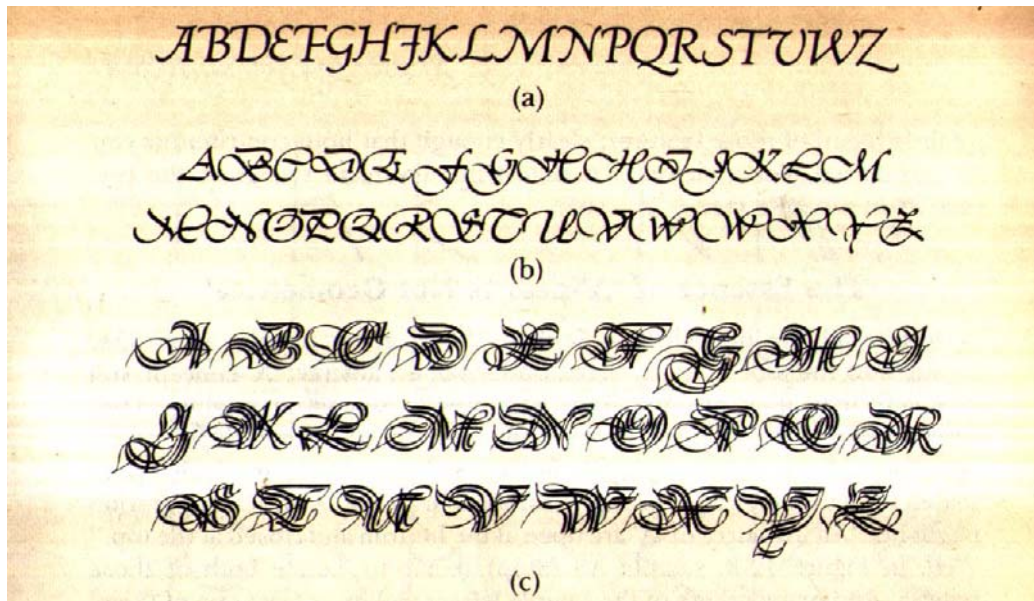 ABDEFGHJKLMNPQRSTUWZ
(a)
ABCDEFGHHIJKLM
NNOPQRSTUVWWXYZ
(b)
A B C D E F G H I
J K L M N O P Q R
S T U V W X Y Z
(c)